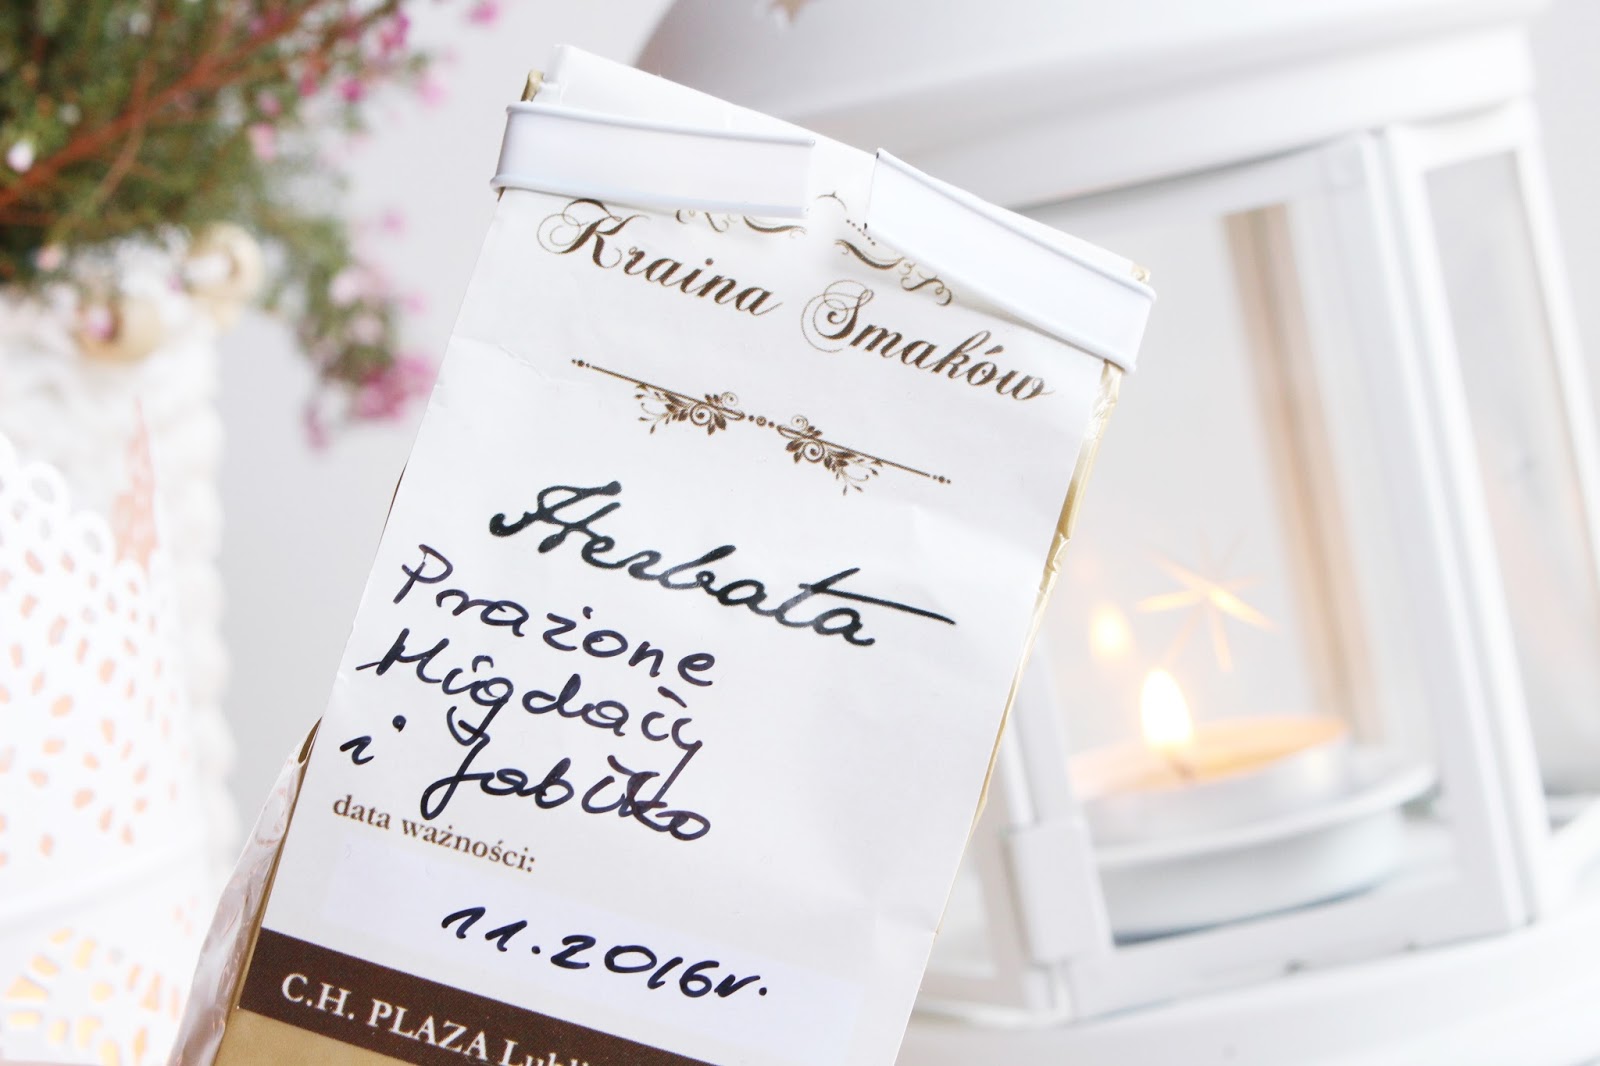 Kraina Smaków
Herbata
Prażone
Migdały
i Jabłko
data ważności:
11.2016r.
C.H. PLAZA